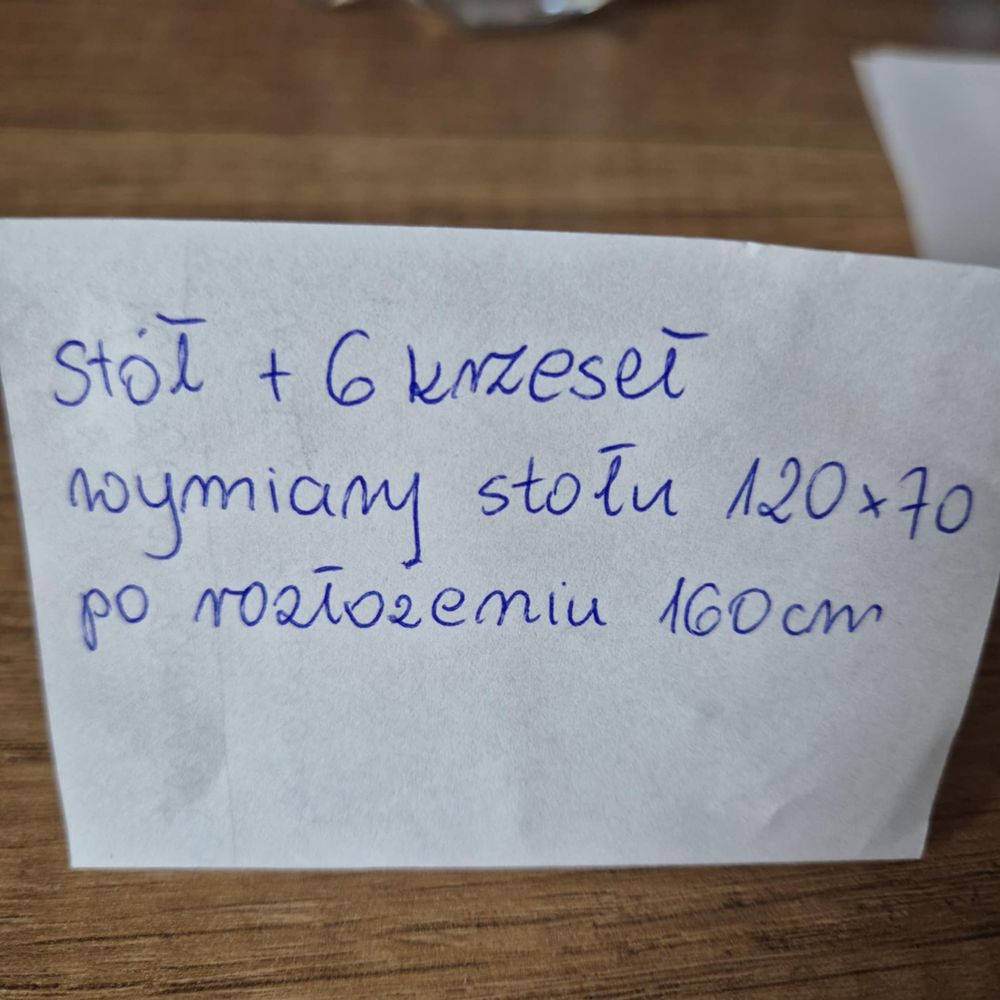 Stół + 6 krzeseł
wymiary stołu 120x70
po rozłożeniu 160cm